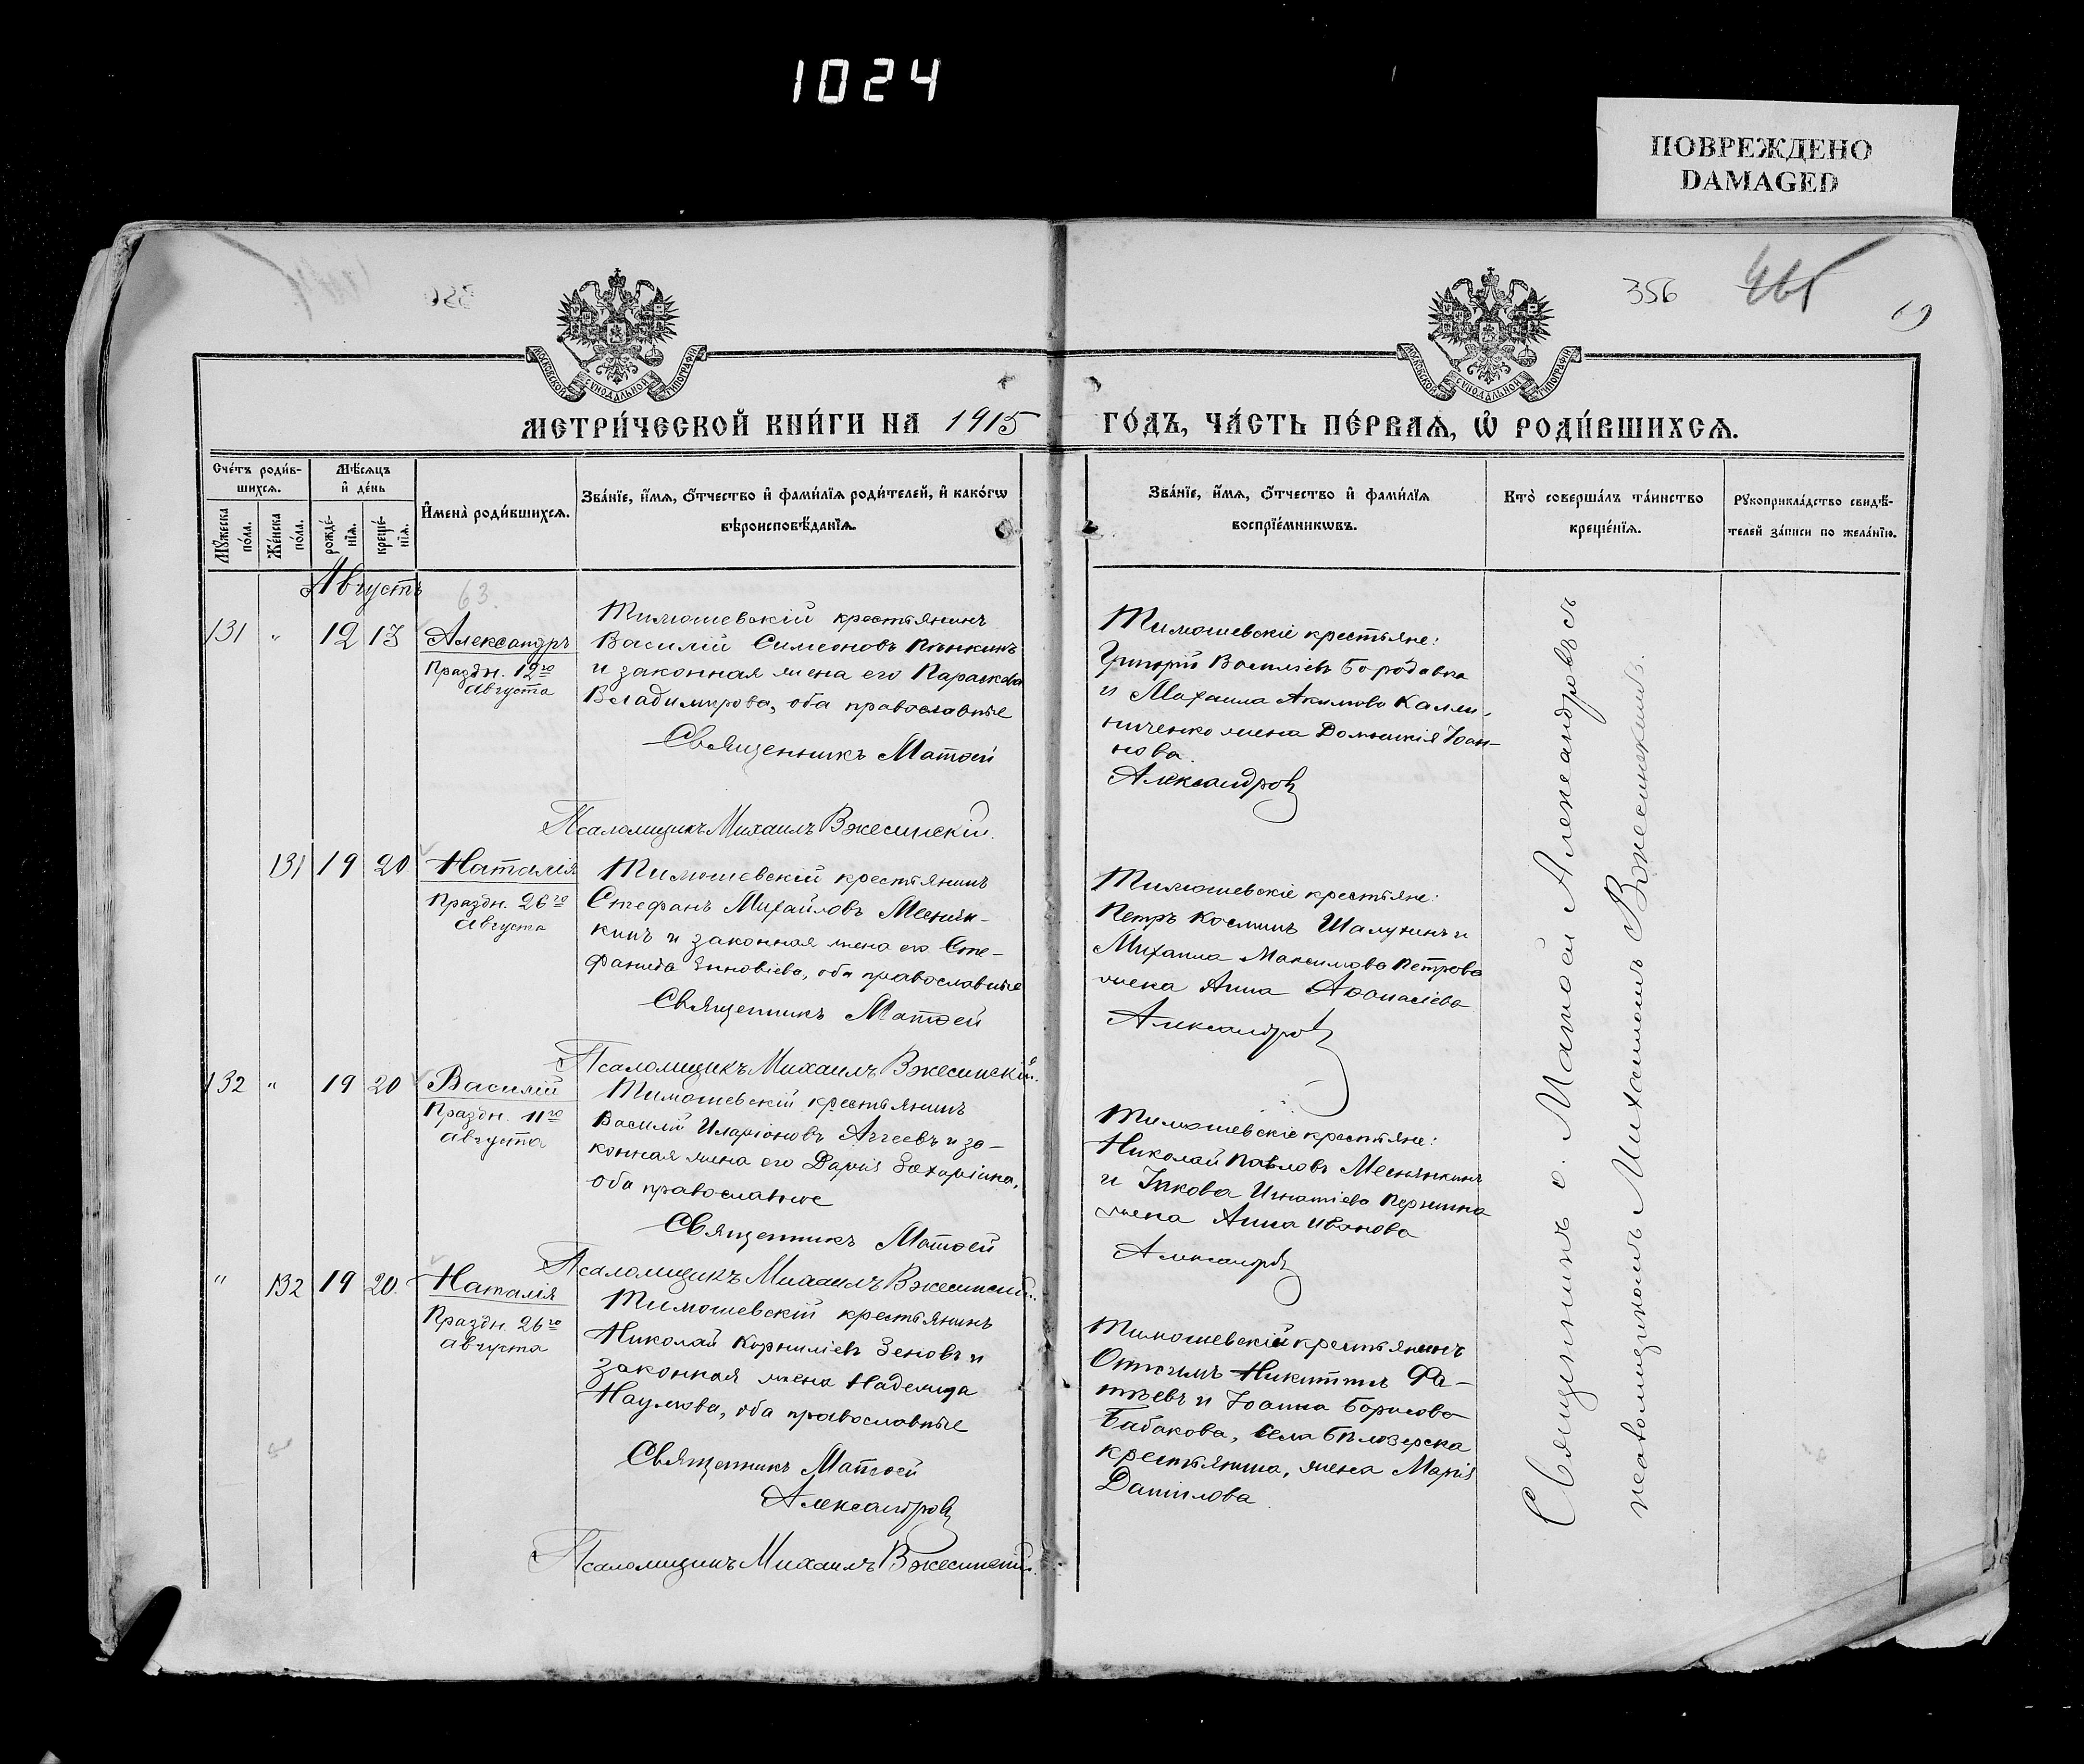 1024
ПОВРЕЖДЕНО
DAMAGED
356
МОСКОВСКОЙ СѴНОДАЛЬНОЙ ТИПОГРАФІИ
МОСКОВСКОЙ СѴНОДАЛЬНОЙ ТИПОГРАФІИ
МЕТРИ́ЧЕСКОЙ КНИ́ГИ НА 1915 ГО́ДЪ, ЧА́СТЬ ПЕ́РВАѦ, Ѡ҆ РОДИ́ВШИХСѦ.
Сче́тъ роди́в-
шихсѧ.
Мѣ́сѧцъ
и҆ де́нь
Мꙋ́жеска
по́ла.
Же́нска
по́ла.
рожде́-
нїѧ.
креще́-
нїѧ.
И҆мена̀ роди́вшихсѧ.
Зва́нїе, и҆́мѧ, ѻ҆́тчество и҆ фами́лїѧ роди́телей, и҆ како́гѡ
вѣроисповѣ́данїѧ.
Зва́нїе, и҆́мѧ, ѻ҆́тчество и҆ фами́лїѧ
воспрїе́мникѡвъ.
Кто̀ соверша́лъ та́инство
креще́нїѧ.
Рꙋкоприкла́дство свидѣ́-
телей за́писи по жела́нїю.
Августъ
63.
131 " 12 13 Александръ
Праздн. 12го
Августа
Тимошевскій крестьянинъ
Василій Симеоновъ Пѣнкинъ
и законная жена его Параскева
Владимірова, оба православные
Священникъ Матѳей
Псаломщикъ Михаилъ Вжесинскій.
Тимошевскіе крестьяне:
Григорій Василіевъ Бородавка
и Михаила Акимова Кали-
ниченко жена Домникія Іоан-
нова.
Александровъ
131 19 20 Наталія
Праздн. 26го
Августа
Тимошевскій крестьянинъ
Стефанъ Михайловъ Меснян-
кинъ и законная жена его Сте-
фанида Зиновіева, оба православные
Священникъ Матѳей
Псаломщикъ Михаилъ Вжесинскій.
Тимошевскіе крестьяне:
Петръ Косминъ Шалунинъ и
Михаила Максимова Петрова
жена Анна Аѳанасіева
Александровъ
132 " 19 20 Василій
Праздн. 11го
августа
Тимошевскій крестьянинъ
Василій Иларіоновъ Аггеевъ и за-
конная жена его Дарія Захаріина,
оба православные
Священникъ Матѳей
Псаломщикъ Михаилъ Вжесинскій.
Тимошевскіе крестьяне:
Николай Павловъ Меснянкинъ
и Іакова Игнатіева
жена Анна Иванова
Александровъ
" 132 19 20. Наталія
Праздн. 26го
августа
Тимошевскій крестьянинъ
Николай Корниліевъ Зеновъ и
законная жена Надежда
Наумова, оба православные
Священникъ Матѳей
Александровъ
Псаломщикъ Михаилъ Вжесинскій.
Тимошевскій крестьянинъ
Никитинъ Фа-
тѣевъ и Іоанна Борисова
Бабакова, села Бѣлозерска
крестьянина, жена Марія
Данилова
Священникъ о. Матѳей Александровъ съ
псаломщикомъ Михаиломъ Вжесинскимъ.